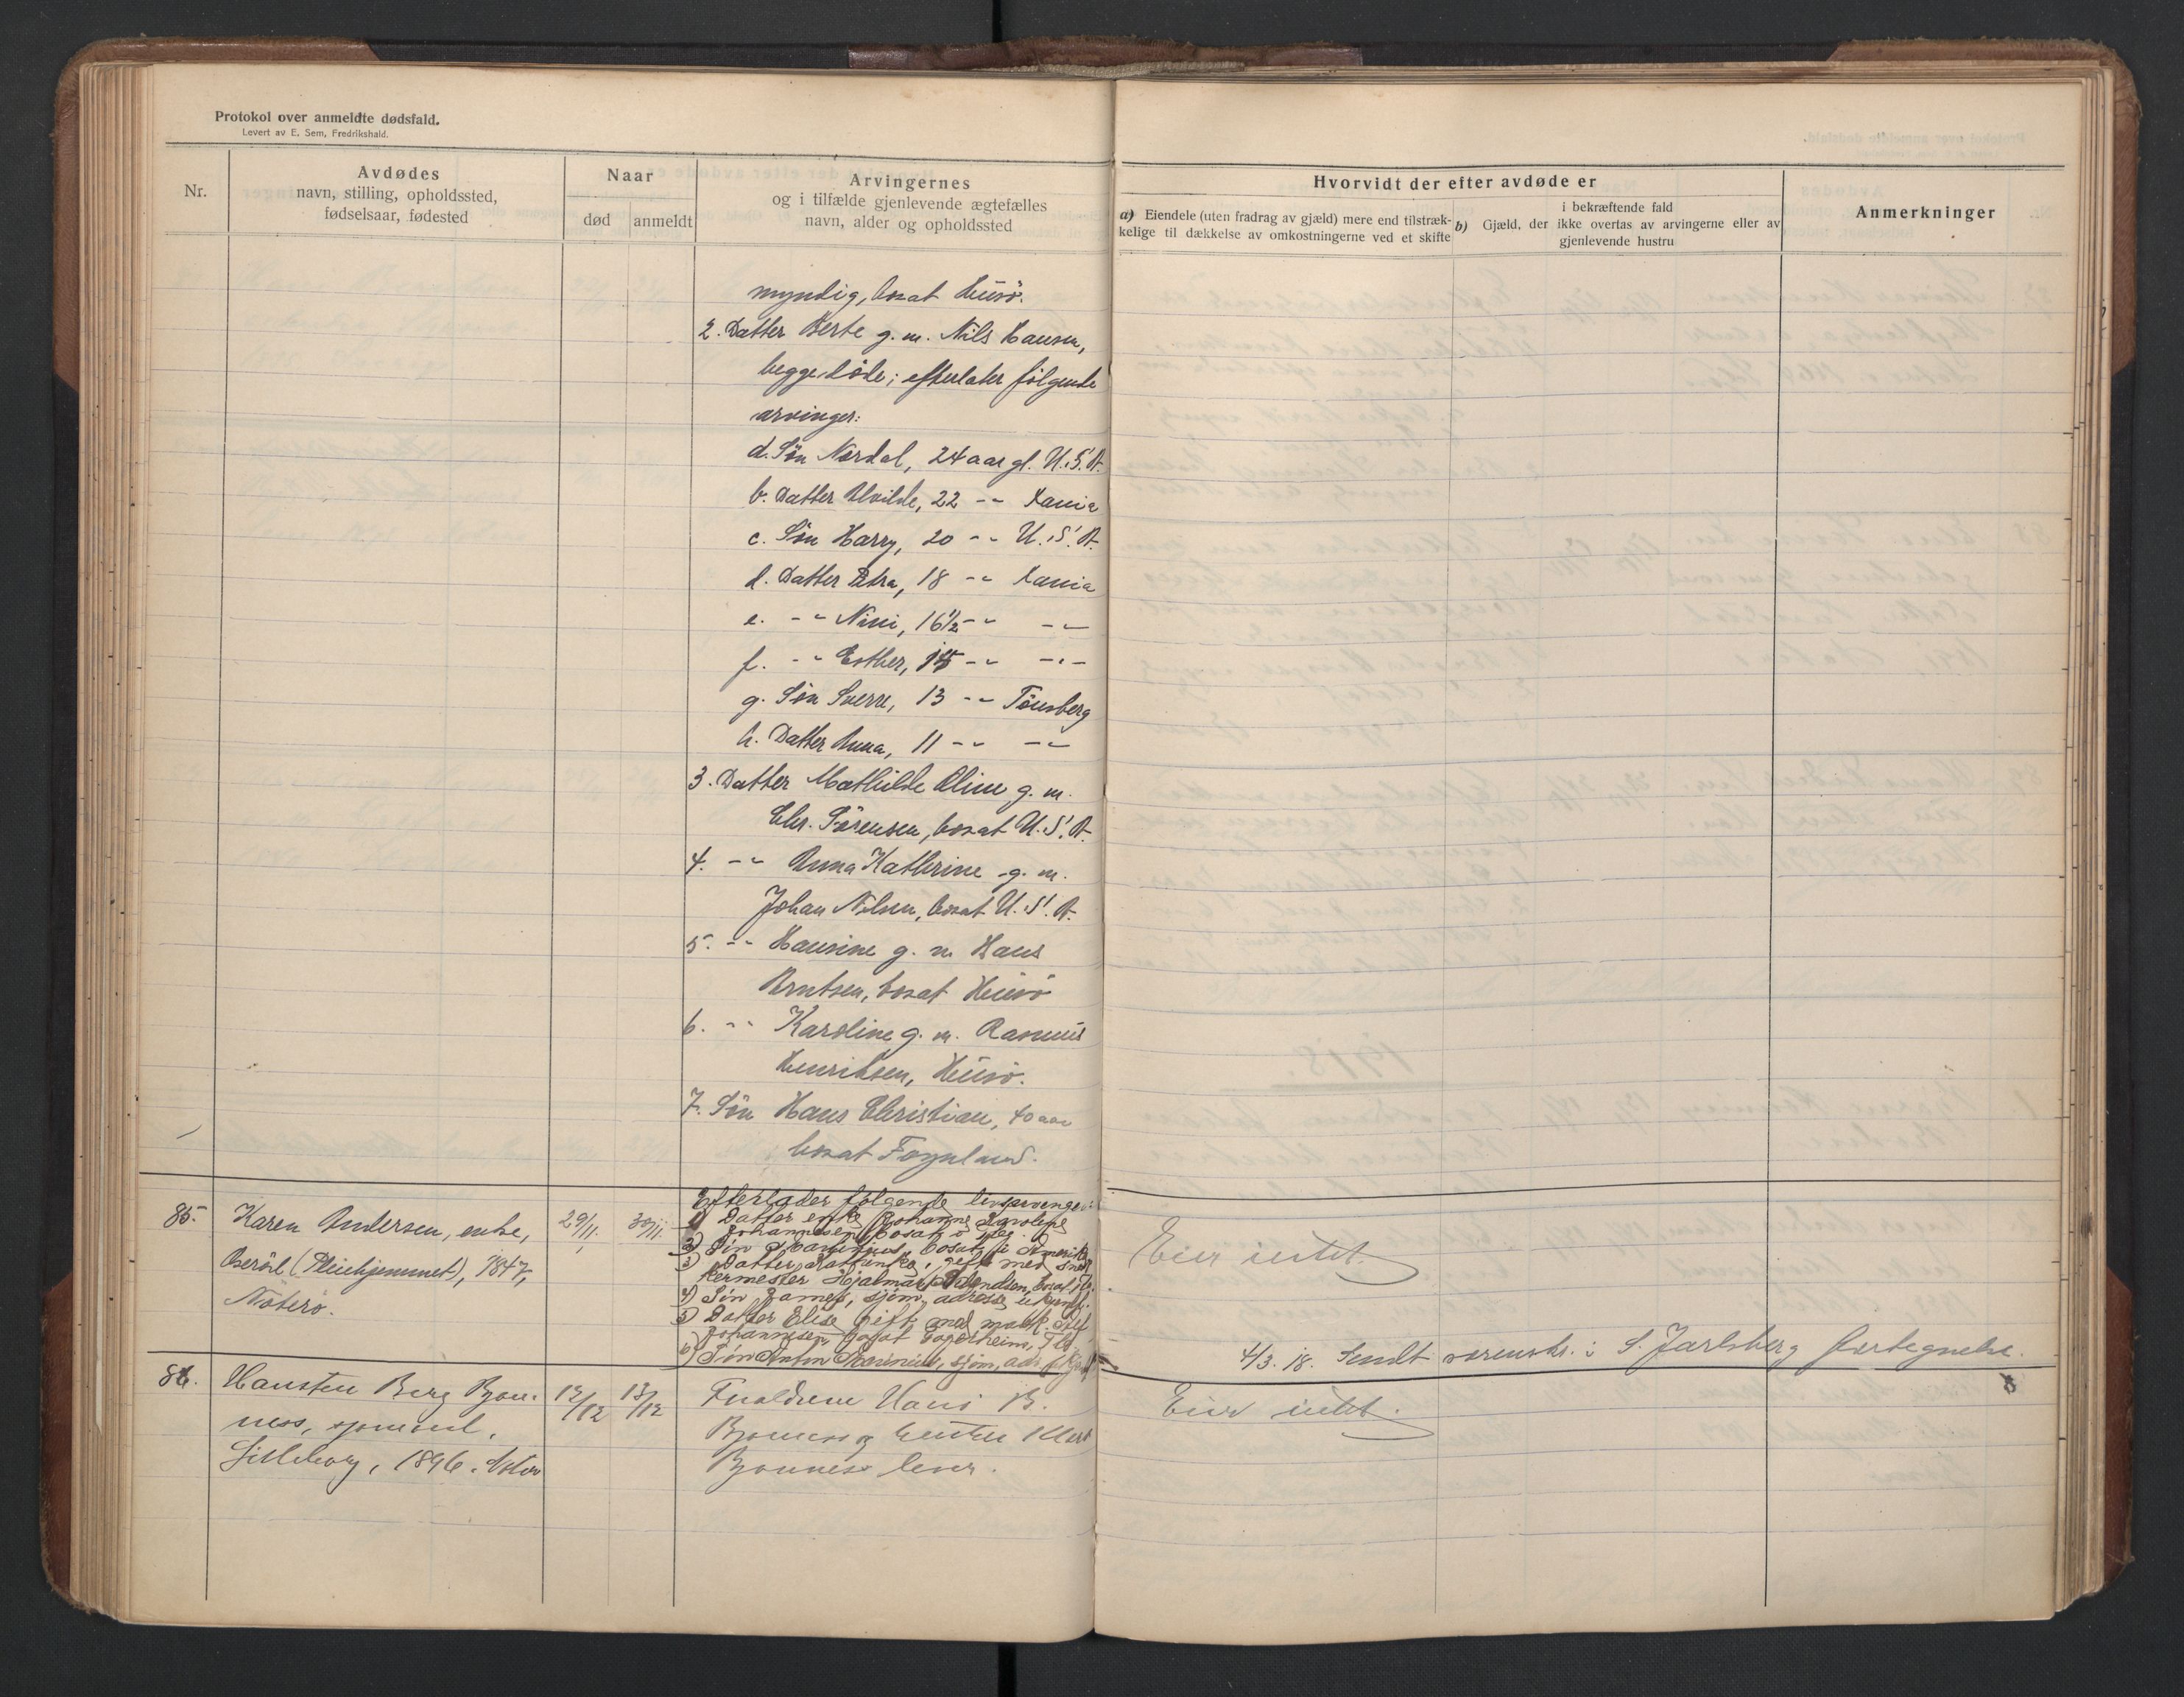 Protokol over anmeldte dødsfald.
Levert av E. Sem, Fredrikshald.
Nr.
Avdødes
navn, stilling, opholdssted,
fødselsaar, fødested
Naar
død
anmeldt
Arvingernes
og i tilfælde gjenlevende ægtefælles
navn, alder og opholdssted
Hvorvidt der efter avdøde er
a) Eiendele (uten fradrag av gjæld) mere end tilstræk-
kelige til dækkelse av omkostningerne ved et skifte
i bekræftende fald
b) Gjæld, der ikke overtas av arvingerne eller av
gjenlevende hustru
Anmerkninger
myndig, bosat Husö.
2. Datter Berte g. m. Nils Hansen,
begge döde; efterlater følgende
arvinger:
a. Sön Nordal, 24 aar gl. U.S.A.
b. Datter Alvilde, 22 -"- Xania
c. Sön Harry, 20 -"- U.S.A.
d. Datter Petra, 18 -"- Xania
e. -"- Nini, 16½ -"- -"-
f. -"- Esther, 15 -"- -"-
g. Sön Sverre, 13 -"- Tönsberg
h. Datter Anna, 11 -"- -"-
3. Datter Mathilde Oline g. m.
Chr. Sörensen, bosat U.S.A.
4. -"- Anna Katherine g. m.
Johan Nilsen, bosat U.S.A.
5. -"- Hansine g. m. Hans
Arntsen, bosat Husö
6. -"- Karoline g. m. Rasmus
Henriksen, Husö.
7. Sön Hans Christian, 40 aar
bosat Föynland.
85. Karen Andersen, enke,
(Pleiehjemmet), 1847,
Nöterö.
29/11. 30/11.
Efterlader følgende livsarvinger:
1) Datter enke Johanne Karoline
Johannesen, bosat i Tbg.
2) Sön Martinius, bosat i Amerika
3) Datter Kathinka, gift med snek
kermester Hjalmar bosat Tb.
4) Sön James, sjöm., adresse ukjendt.
5) Datter Elise gift med mask.
Johannesen bosat Fagerheim, Tb.
6) Sön Anton Marinius, sjöm., adr. ukjendt
Eier intet.
4/3. 18. Sendt sorenskr. i S. Jarlsberg fortegnelse.
86. Hansten Berg Bjon-
ness, sjömand,
1896.
12/12 13/12
Forældrene Hans B.
Bjonness og hustru
Bjonness lever.
Eier intet.